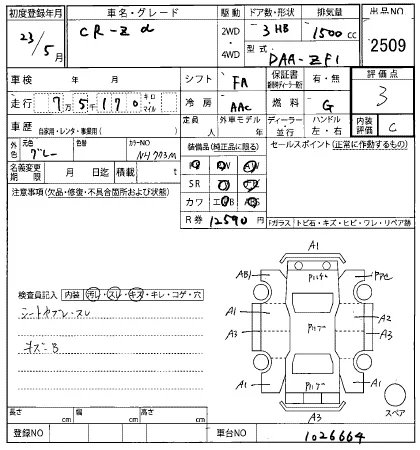 初度登録年月 車名・グレード 駆動 ドア数・形状 排気量 出品NO
23/5月 CR-Z α 2WD・4WD 3 HB 1500cc 2509
型式 DAA-ZF1
車検 年 月 シフト FA 保証書 有・無 評価点
走行 7万5千170 キロ・マイル 冷房 AAC 燃料 G 3
車歴 自家用・レンタ・事業用 定員 人 外車モデル 年 ディーラー・並行 ハンドル 左・右 内装評価 C
外色 元色 グレー 色替 カラーNO NH703M 装備品(純正品に限る) セールスポイント(正常に作動するもの)
名義変更期限 月 日迄 積載 t
SR
カワ
注意事項(欠品・修復・不具合箇所および状態)
R券 12590
『ガラス』トビ石・キズ・ヒビ・ワレ・リペア跡
A1
AB1
検査員記入 内装 汚レ・スレ・キズ・キレ・コゲ・穴
A1 A2
A3 A3
キズ-B
A1 A1
A3
スペア
長さ cm 幅 cm 高さ cm
登録NO 車台NO 1026664